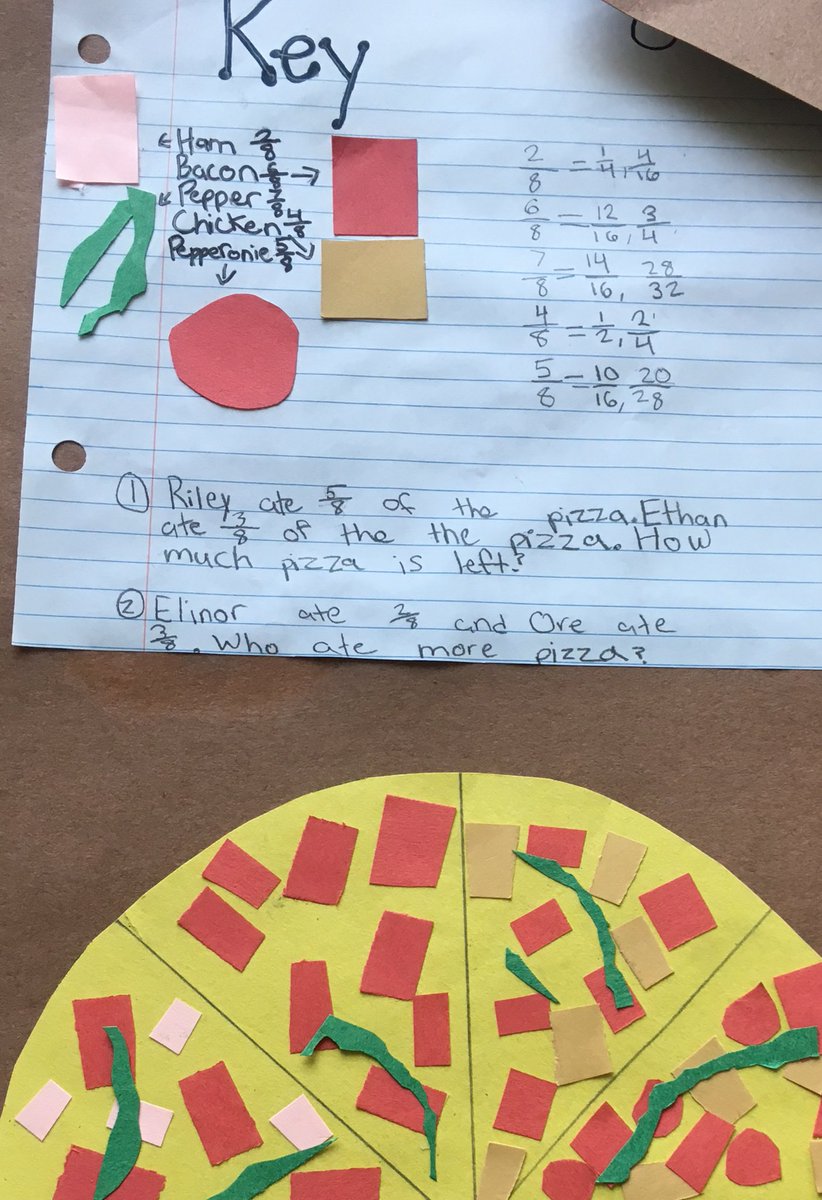 Key
← Ham 2/8
Bacon 6/8 →
← Pepper 7/8
Chicken 4/8 ↘
Pepperonie 5/8
↓
2/8 = 1/4, 4/16
6/8 = 12/16, 3/4
7/8 = 14/16, 28/32
4/8 = 1/2, 2/4
5/8 = 10/16, 20/28
① Riley ate 5/8 of the pizza. Ethan
ate 3/8 of the the pizza. How
much pizza is left?
② Elinor ate 2/8 and Ore ate
3/8. Who ate more pizza?